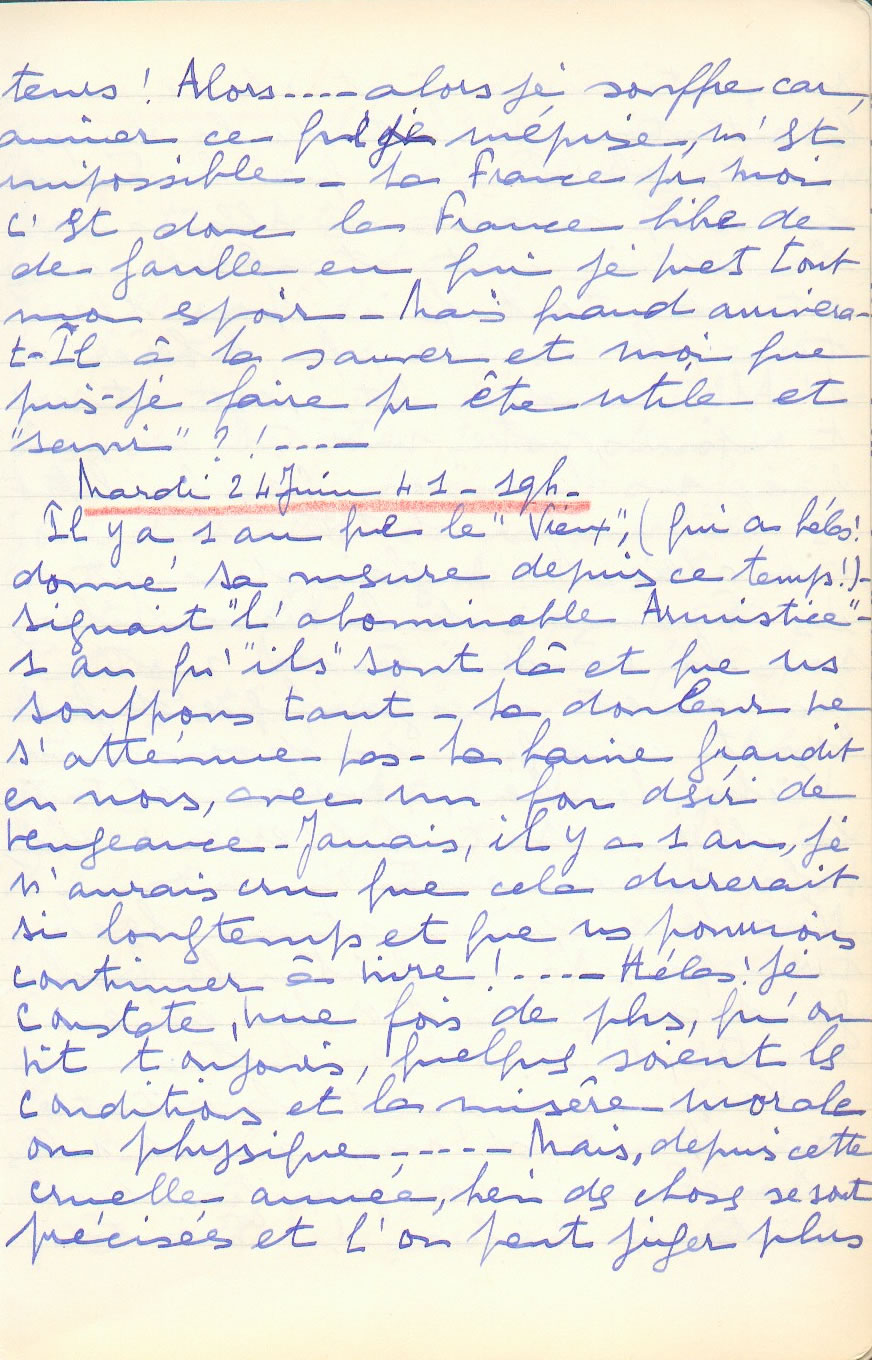 teurs! Alors---- alors je souffre car,
aimer ce que je méprise, m'est
impossible - La France pr moi
c'est donc la France libre de
de Gaulle en qui je mets tout
mon espoir - Mais quand arrivera-
t-Il à la sauver et moi que
puis-je faire pr être utile et
"servir" ?!----
Mardi 24 Juin 41 - 19h -
Il y a 1 an que le "Vieux", (qui a hélas!
donné sa mesure depuis ce temps!)-
signait "l'abominable Armistice"-
1 an qu'"ils" sont là et que ns
souffrons tant - La douleur ne
s'atténue pas - La haine grandit
en nous, avec un fou désir de
vengeance - Jamais, il y a 1 an, je
n'aurais cru que cela durerait
si longtemps et que ns pourrions
continuer à vivre!---- Hélas! je
constate, une fois de plus, qu'on
vit toujours, quelques soient les
conditions et la misère morale
ou physique----- Mais, depuis cette
cruelle année, bien des choses se sont
précisées et l'on peut juger plus